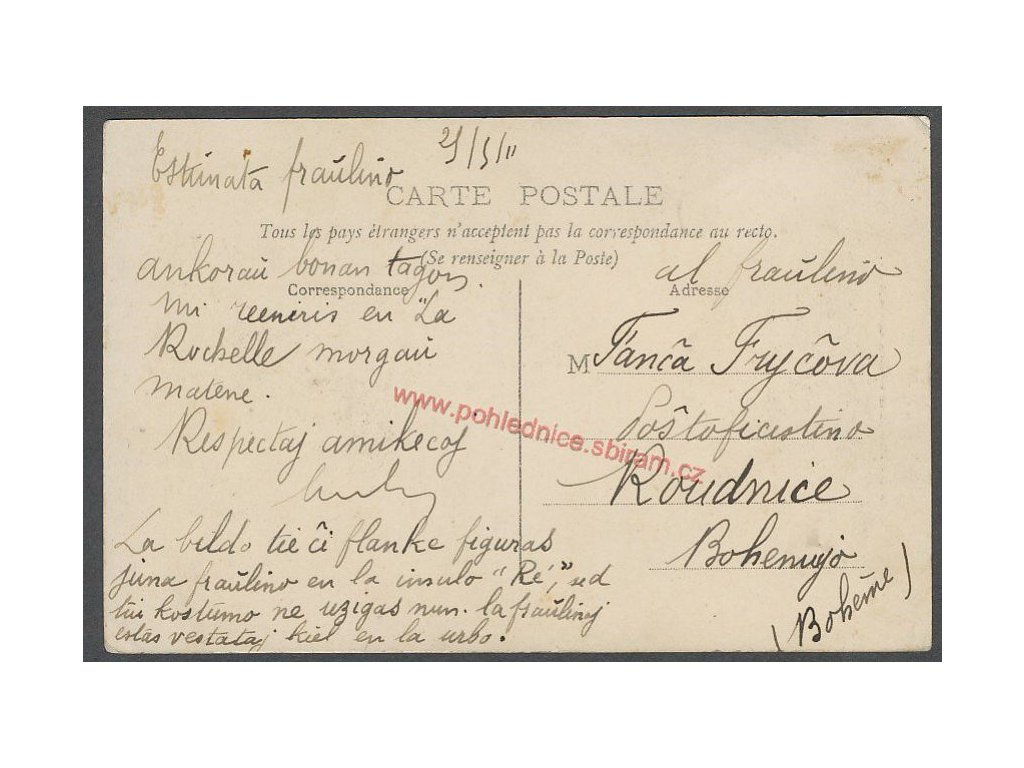 Estimata fraŭlino
25/5/11
CARTE POSTALE
Tous les pays étrangers n'acceptent pas la correspondance au recto.
(Se renseigner à la Poste)
ankoraŭ bonan tagon.
Correspondance
mi reeniris en "La
Rochelle morgaŭ
matene.
Respectaj amikecoj
La bildo tie ĉi flanke figuras
juna fraŭlino en la insulo "Ré", sed
tiu kostumo ne uzigas nun. la fraŭlinoj
estas vestataj kiel en la urbo.
al fraŭlino
Adresse
M Fanĉa Fryĉova
Poŝtoficistino
Roudnice
Bohemujo
(Bohême)
www.pohlednice.sbiram.cz